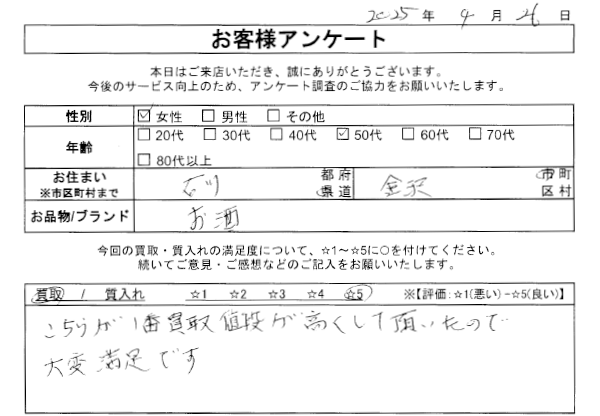 2025年 4月 26日
お客様アンケート
本日はご来店いただき、誠にありがとうございます。
今後のサービス向上のため、アンケート調査のご協力をお願いいたします。
性別 ☑女性 □男性 □その他
年齢 □20代 □30代 □40代 ☑50代 □60代 □70代
□80代以上
お住まい ※市区町村まで 石川 都府県道 金沢 市町区村
お品物/ブランド お酒
今回の買取・質入れの満足度について、☆1～☆5に○を付けてください。
続いてご意見・ご感想などのご記入をお願いいたします。
買取 / 質入れ ☆1 ☆2 ☆3 ☆4 ☆5 ※【評価:☆1(悪い)-☆5(良い)】
こちらが1番買取値段が高くして頂いたので
大変満足です